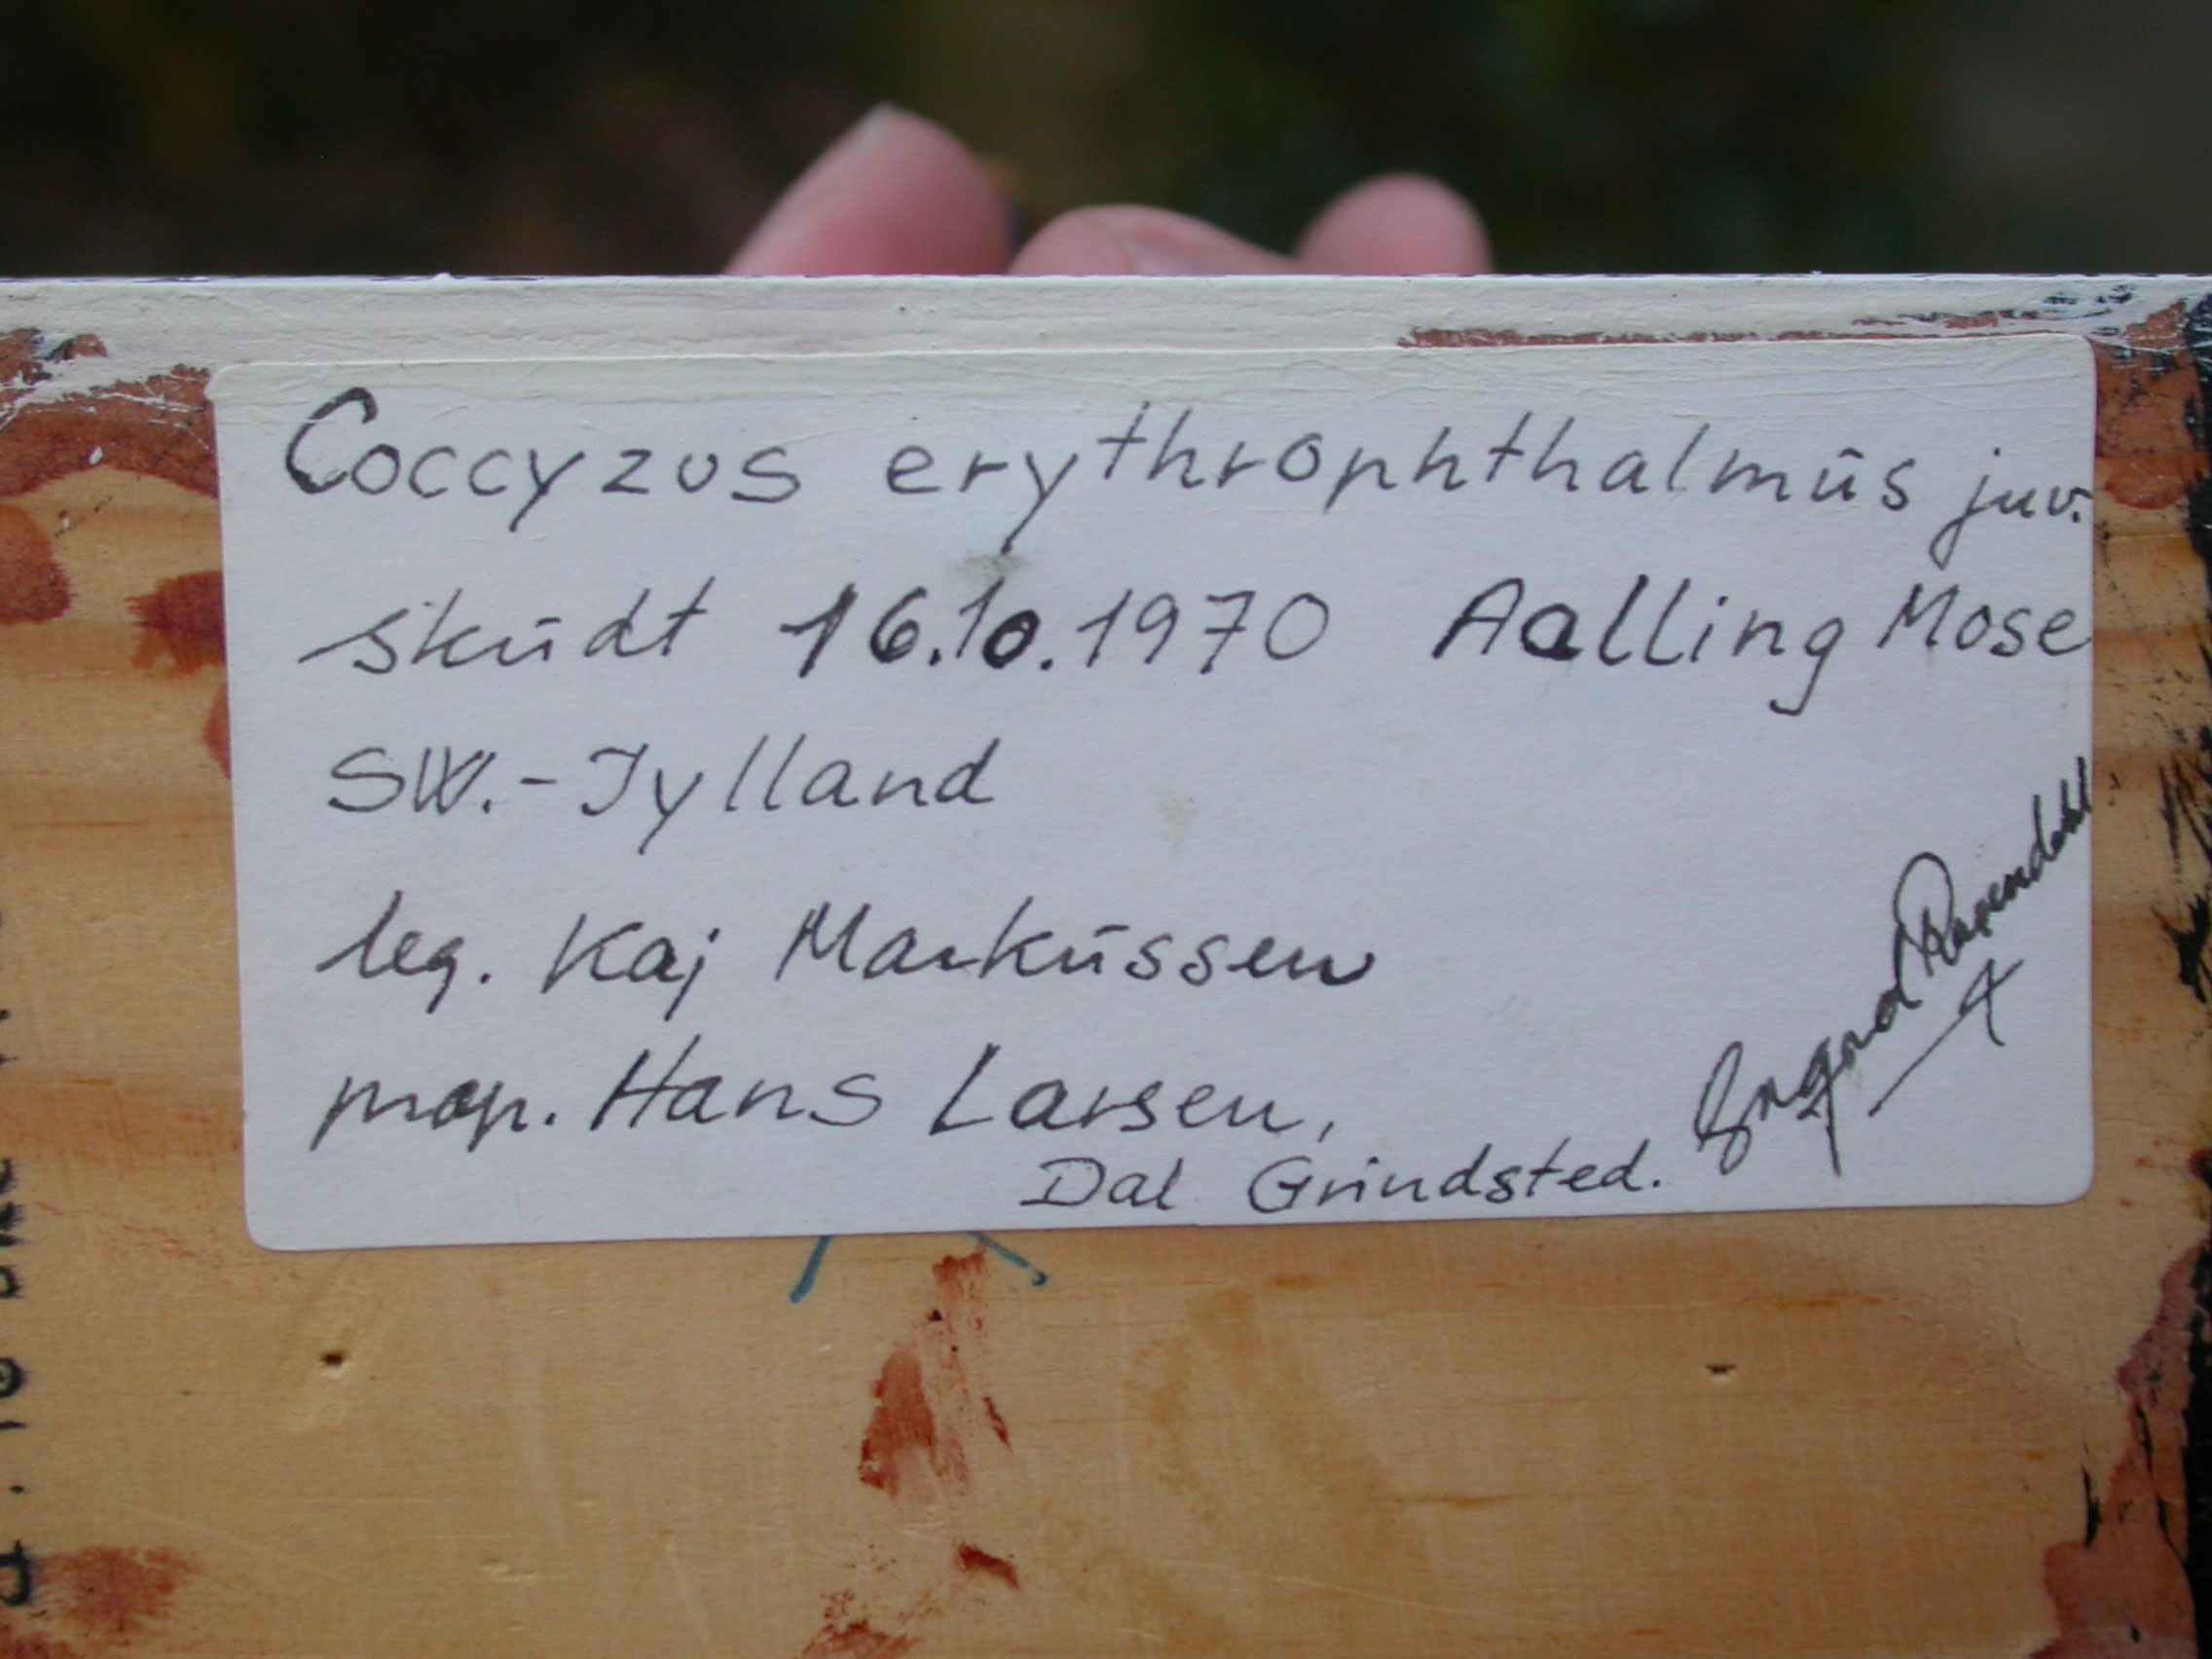 Coccyzus erythrophthalmūs juv.
skūdt 16.10.1970 Aalling Mose
SW.-Jylland
leg. Kaj Markūssen
prep. Hans Larsen,
Dal Grindsted.